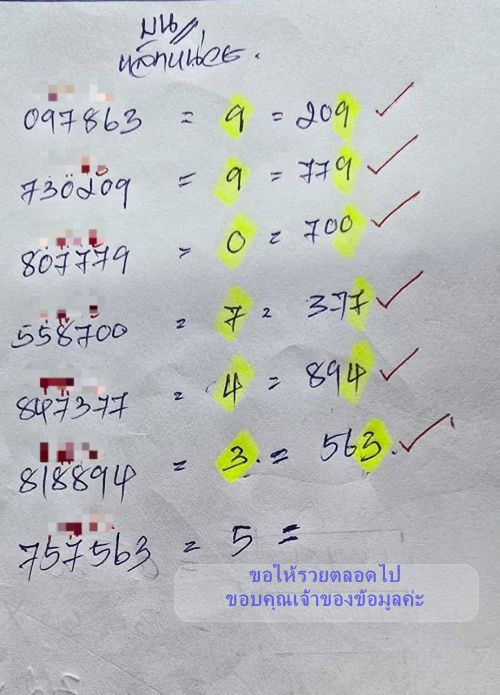 บน
หลักหน่วย.
097863 = 9 = 209 ✓
730209 = 9 = 779 ✓
807779 = 0 = 700 ✓
558700 = 7 = 377 ✓
847377 = 4 = 894 ✓
818894 = 3. = 563. ✓
757563 = 5 =
ขอให้รวยตลอดไป
ขอบคุณเจ้าของข้อมูลค่ะ